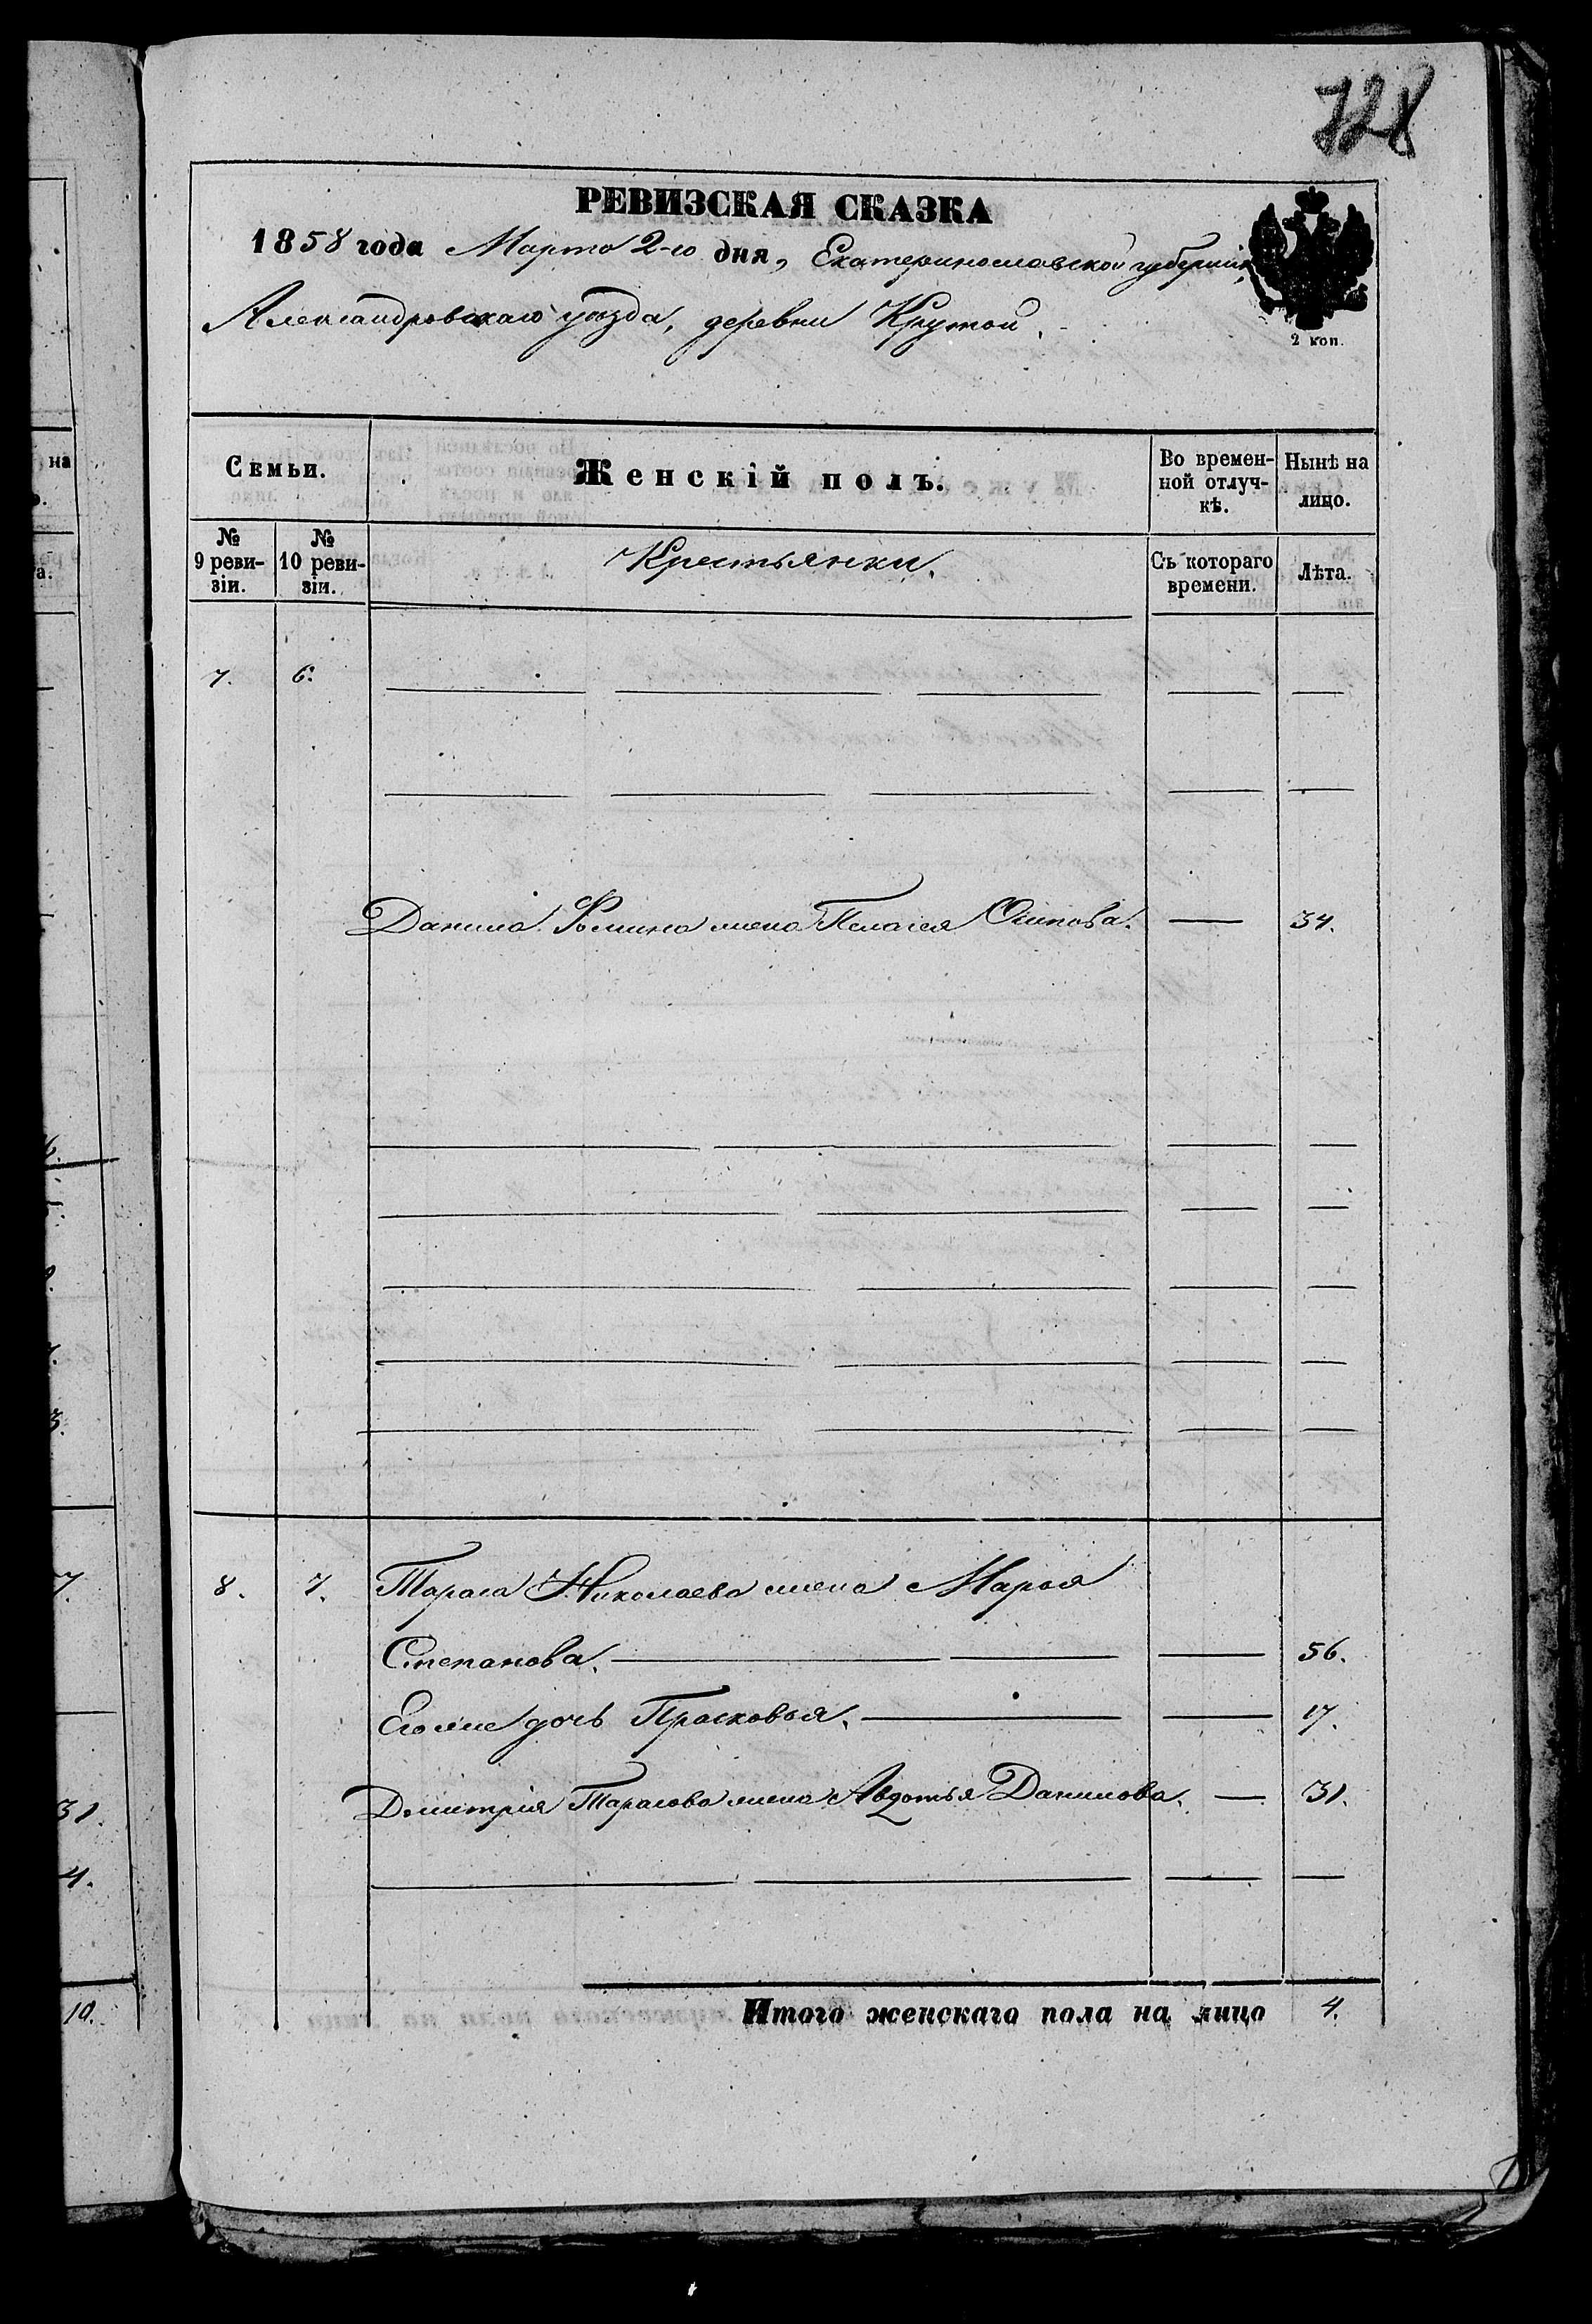 728
РЕВИЗСКАЯ СКАЗКА
1858 года Марта 2-го дня, Екатеринославской губерніи
Александровскаго уѣзда, деревни Крутой.
2 коп.
Семьи.
Женскій полъ.
Во времен-
ной отлуч-
кѣ.
Нынѣ на
лицо.
№
9 реви-
зіи.
№
10 реви-
зіи.
Крестьянки.
Съ котораго
времени.
Лѣта.
7. 6.
Данила Фомина жена Пелагея Осипова. — 34.
8. 7. Тараса Николаева жена Марья
Степанова. — 56.
Его же дочь Прасковья. — 17.
Дмитрія Тарасова жена Авдотья Данилова. — 31.
Итого женскаго пола на лицо 4.
на
а.
7.
31.
4.
10.